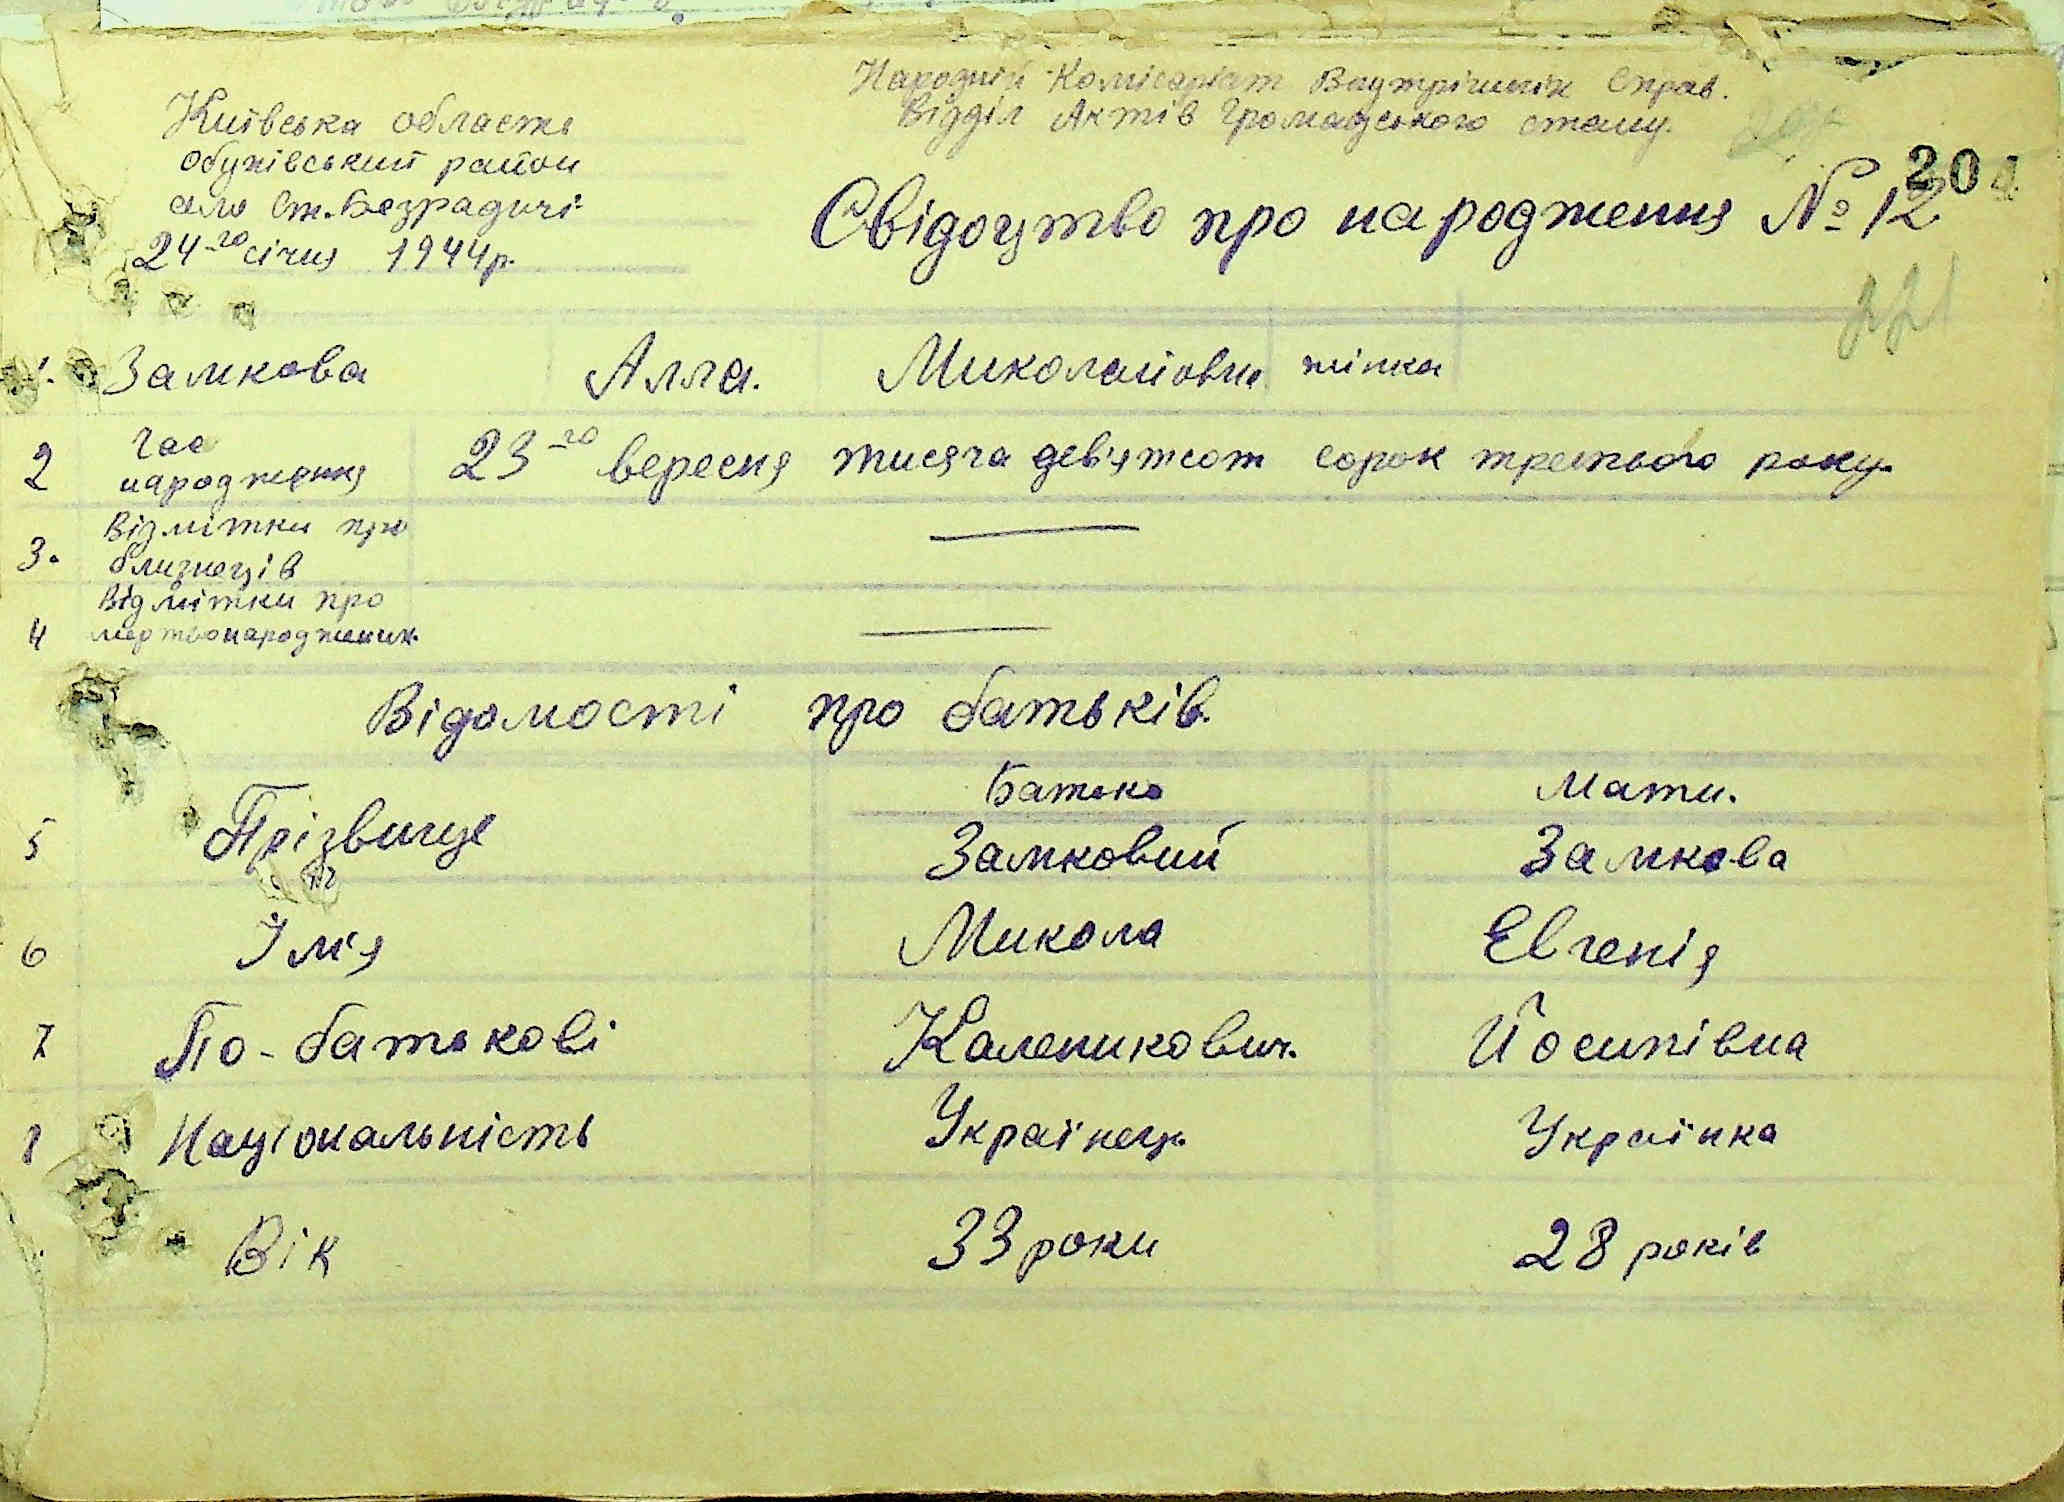 Народній Комісаріят Внутрішніх Справ.
Відділ Актів Громадського стану.
Київська область
Обухівський район
село Ст. Безрадичі
24-го січня 1944р.
204
Свідоцтво про народження № 12
221
1. Замкова Алла. Миколаївна жінка
2 Час народження 23-го вересня тисяча дев'ятсот сорок третього року.
3. Відмітки про близнеців —
4 Відмітки про мертвонароджених. —
Відомості про батьків.
Батько Мати.
5 Прізвище Замковий Замкова
6 Ім'я Микола Евгенія
7 По-батькові Каленикович. Йосипівна
8 Національність Українець Українка
Вік 33 роки 28 років